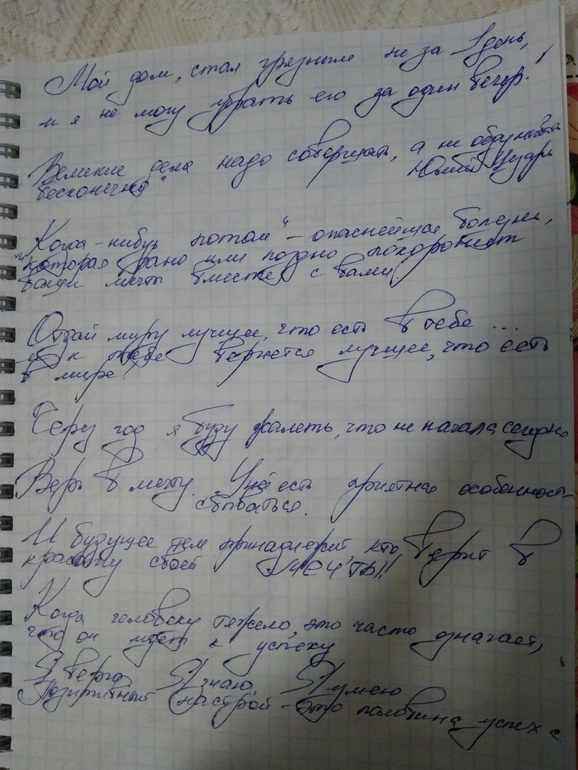 Мой дом, стал грязным не за 1 день,
и я не могу убрать его за один вечер!
Великие дела надо совершать, а не обдумывать
бесконечно" Юлий Цезарь
"Когда-нибуь потом" – опаснейшая болезнь,
которая рано или поздно похоронит
ваши мечты вместе с вами
Отдай миру лучшее, что есть в тебе ...
и к тебе вернется лучшее, что есть
в мире
Через год я буду жалеть, что не начала сегодня
Верь в мечту. У неё есть приятная особенность –
сбываться.
И будущее тем принадлежит, кто верит в
красоту своей МЕЧТЫ!
Когда человеку тяжело, это часто означает,
что он идет к успеху
Я верю Я знаю Я умею
Позитивный настрой – это половина успеха